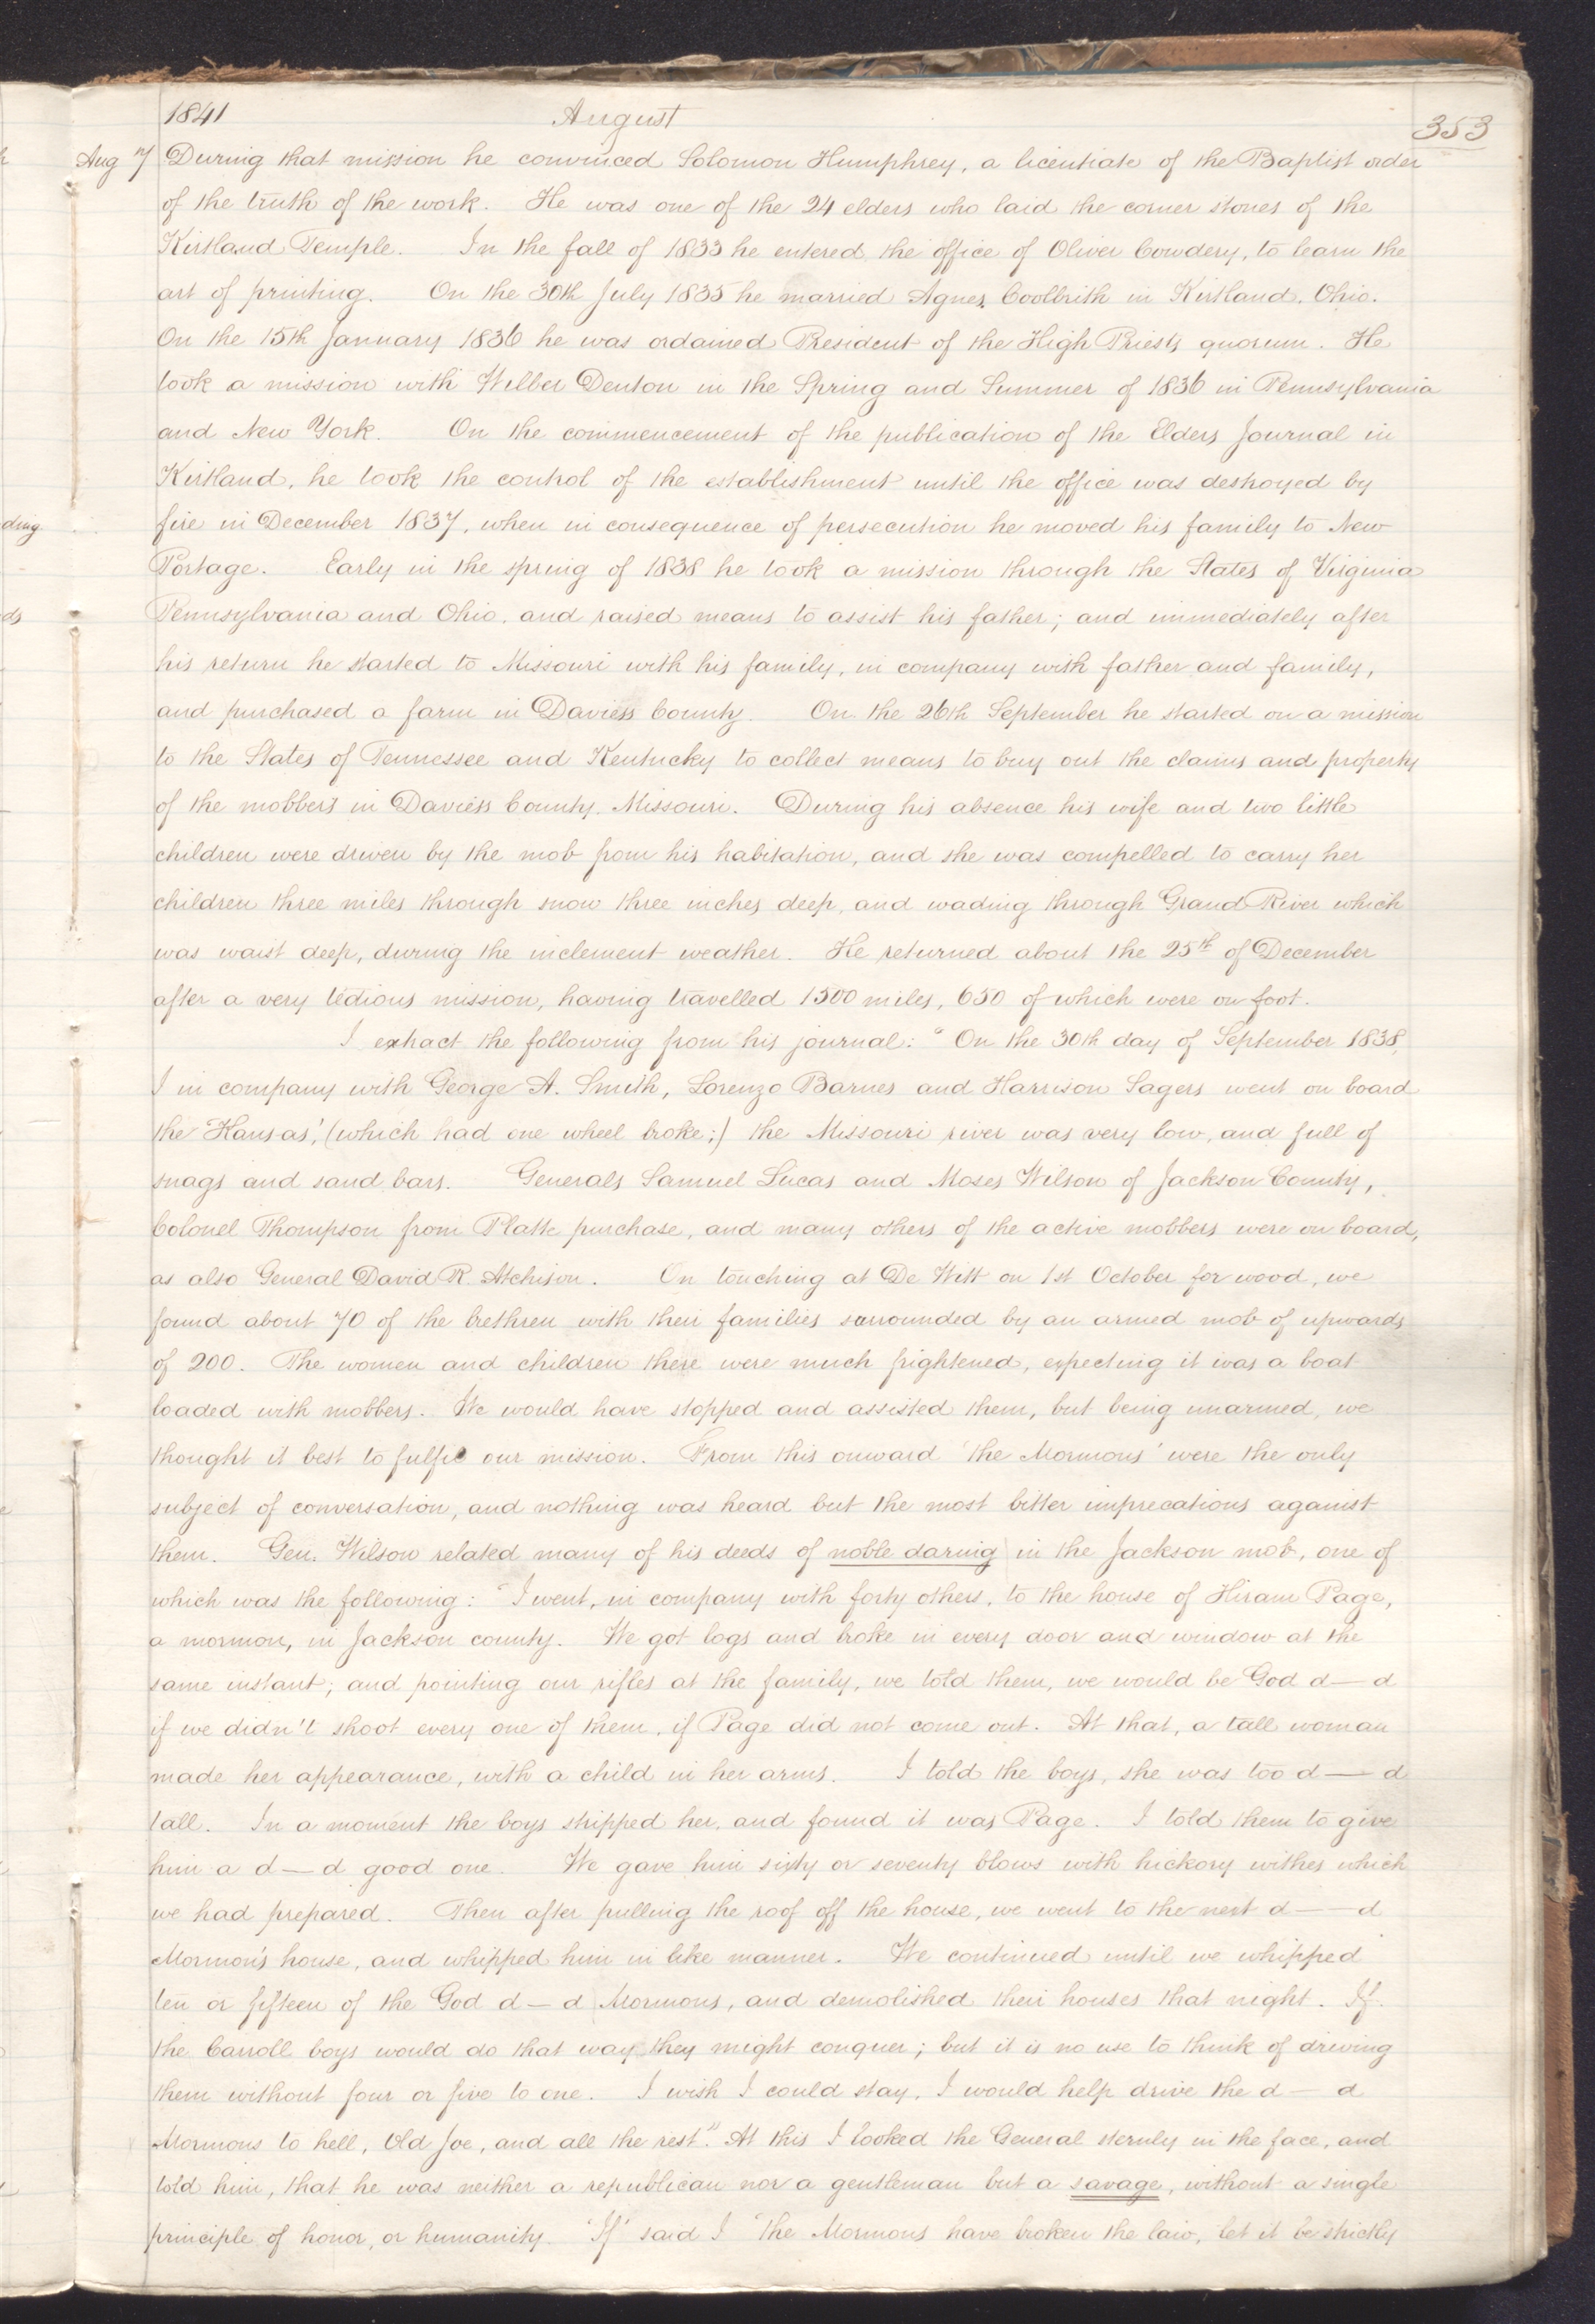 1841 August 353
Aug 7 During that mission he convinced Solomon Humphrey, a licentiate of the Baptist order
of the truth of the work. He was one of the 24 elders who laid the corner stones of the
Kirtland Temple. In the fall of 1833 he entered the office of Oliver Cowdery, to learn the
art of printing. On the 30th July 1835 he married Agnes Coolbrith in Kirtland, Ohio.
On the 15th January 1836 he was ordained President of the High Priests quorum. He
took a mission with Wilber Denton in the Spring and Summer of 1836 in Pennsylvania
and New York. On the commencement of the publication of the Elders Journal in
Kirtland, he took the control of the establishment until the office was destroyed by
fire in December 1837, when in consequence of persecution he moved his family to New
Portage. Early in the spring of 1838 he took a mission through the States of Virginia
Pennsylvania and Ohio, and raised means to assist his father; and immediately after
his return he started to Missouri with his family, in company with father and family,
and purchased a farm in Daviess County. On the 26th September he started on a mission
to the States of Tennessee and Kentucky to collect means to buy out the claims and property
of the mobbers in Daviess County, Missouri. During his absence his wife and two little
children were driven by the mob from his habitation, and she was compelled to carry her
children three miles through snow three inches deep, and wading through Grand River which
was waist deep, during the inclement weather. He returned about the 25th of December
after a very tedious mission, having travelled 1500 miles, 650 of which were on foot.
I extract the following from his journal: "On the 30th day of September 1838,
I in company with George A. Smith, Lorenzo Barnes and Harrison Sagers went on board
the 'Kansas', (which had one wheel broke;) the Missouri river was very low, and full of
snags and sand bars. Generals Samuel Lucas and Moses Wilson of Jackson County,
Colonel Thompson from Platte purchase, and many others of the active mobbers were on board,
as also General David R. Atchison. On touching at De Witt on 1st October for wood, we
found about 70 of the brethren with their families surrounded by an armed mob of upwards
of 200. The women and children there were much frightened, expecting it was a boat
loaded with mobbers. We would have stopped and assisted them, but being unarmed, we
thought it best to fulfil our mission. From this onward 'the Mormons' were the only
subject of conversation, and nothing was heard but the most bitter imprecations against
them. Gen. Wilson related many of his deeds of noble daring in the Jackson mob, one of
which was the following: "I went, in company with forty others, to the house of Hiram Page,
a mormon, in Jackson county. We got logs and broke in every door and window at the
same instant; and pointing our rifles at the family, we told them, we would be God d—d
if we didn't shoot every one of them, if Page did not come out. At that, a tall woman
made her appearance, with a child in her arms. I told the boys, she was too d—d
tall. In a moment the boys stripped her, and found it was Page. I told them to give
him a d—d good one. We gave him sixty or seventy blows with hickory withes which
we had prepared. Then after pulling the roof off the house, we went to the next d—d
Mormon's house, and whipped him in like manner. We continued until we whipped
ten or fifteen of the God d—d Mormons, and demolished their houses that night. If
the Carroll boys would do that way they might conquer; but it is no use to think of driving
them without four or five to one. I wish I could stay, I would help drive the d—d
Mormons to hell, Old Joe, and all the rest". At this I looked the General sternly in the face, and
told him, that he was neither a republican nor a gentleman but a savage, without a single
principle of honor, or humanity. "If" said I "the Mormons have broken the law, let it be strictly